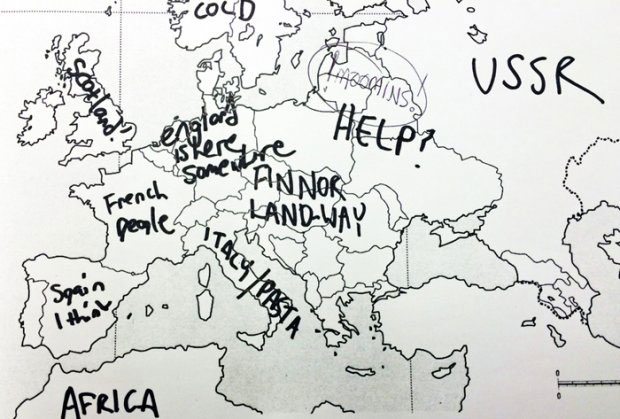 COLD
USSR
Scotland?
HELP?
england
is here
somewhere
FINNOR
LAND-WAY
French
people
ITALY/PASTA
Spain
I think
AFRICA